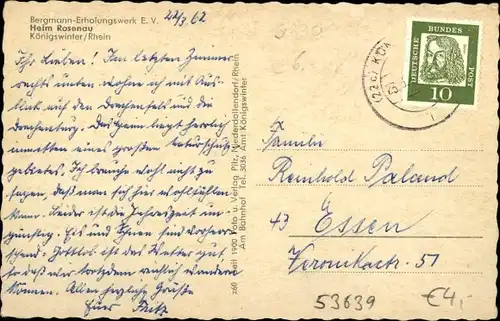 Bergmann-Erholungswerk E. V.
Heim Rosenau
Königswinter/Rhein
22/3. 62
Ihr Lieben! Im letzten Zimmer
rechts unten wohne ich mit Aus-
blick auf den Drachenfels und die
Drachenburg. Das Heim liegt herrlich
inmitten eines großen Naturschutz-
gebietes. Ich brauche wohl nicht zu
sagen, daß man sich hier wohlfühlen
kann. Leider ist die Jahreszeit un-
günstig. Eis und Schnee sind vorherr-
schend. Gottlob ist das Wetter gut,
so daß wir trotzdem reichlich wandern
können. Allen herzliche Grüße
Euer Fritz
z60 seit 1900 Foto u. Verlag Pilz, Niederdollendorf/Rhein
Am Bahnhof Tel. 3036 Amt Königswinter
DEUTSCHE BUNDES POST
10
(22c) KÖN
Familie
Reinhold Paland
43 Essen
Veronikastr. 51
53639
€4,-